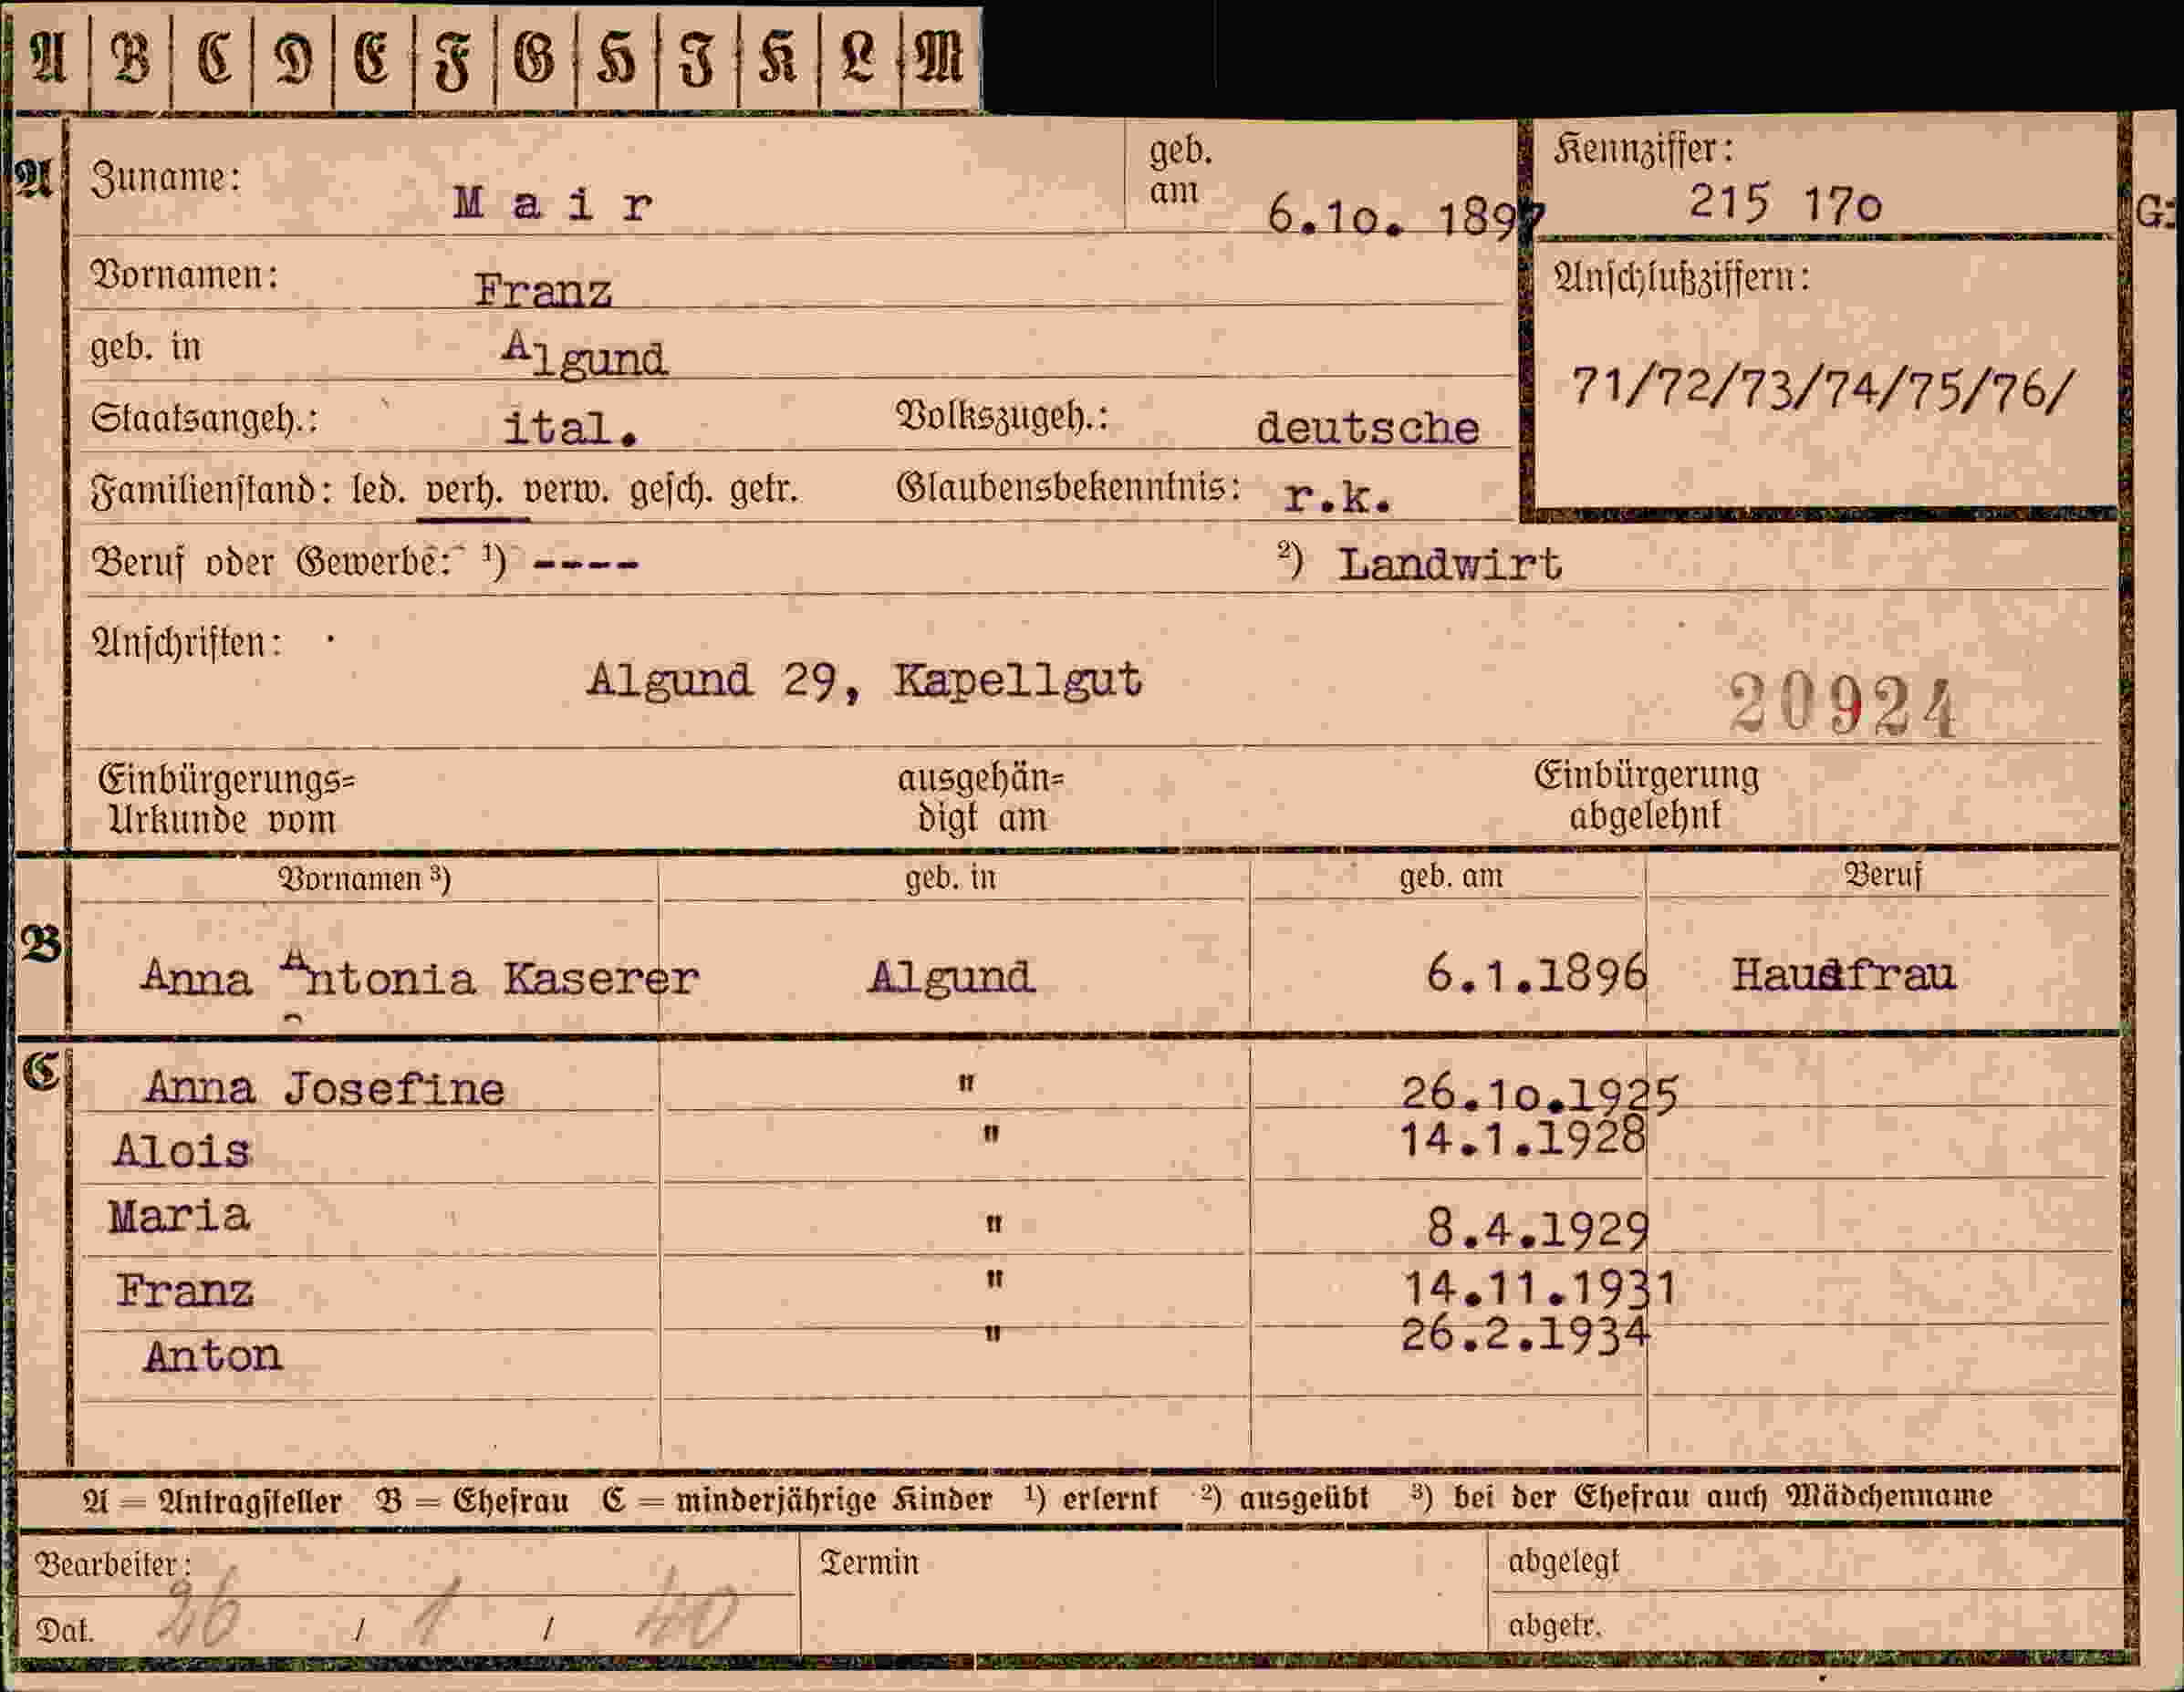 A B C D E F G H I K L M
A Zuname: Mair geb. am 6.10. 1897 Kennziffer: 215 170
Vornamen: Franz Anschlußziffern:
geb. in Algund 71/72/73/74/75/76/
Staatsangeh.: ital. Volkszugeh.: deutsche
Familienstand: led. verh. verw. gesch. getr. Glaubensbekenntnis: r.k.
Beruf oder Gewerbe: ¹) ---- ²) Landwirt
Anschriften:
Algund 29, Kapellgut 20924
Einbürgerungs= ausgehän= Einbürgerung
Urkunde vom digt am abgelehnt
Vornamen ³) geb. in geb. am Beruf
B Anna Antonia Kaserer Algund 6.1.1896 Hausfrau
C Anna Josefine " 26.10.1925
Alois " 14.1.1928
Maria " 8.4.1929
Franz " 14.11.1931
Anton " 26.2.1934
A = Antragsteller B = Ehefrau C = minderjährige Kinder ¹) erlernt ²) ausgeübt ³) bei der Ehefrau auch Mädchenname
Bearbeiter: Termin abgelegt
Dat. 26 / 1 / 40 abgetr.